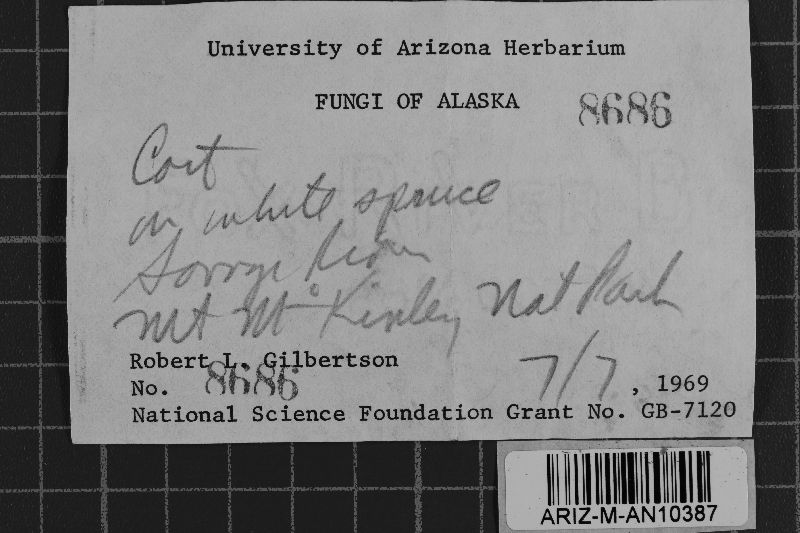 University of Arizona Herbarium
FUNGI OF ALASKA 8686
Cort
on white spruce
River
Mt McKinley Nat Park
Robert L. Gilbertson
No. 8686 7/7, 1969
National Science Foundation Grant No. GB-7120
ARIZ-M-AN10387